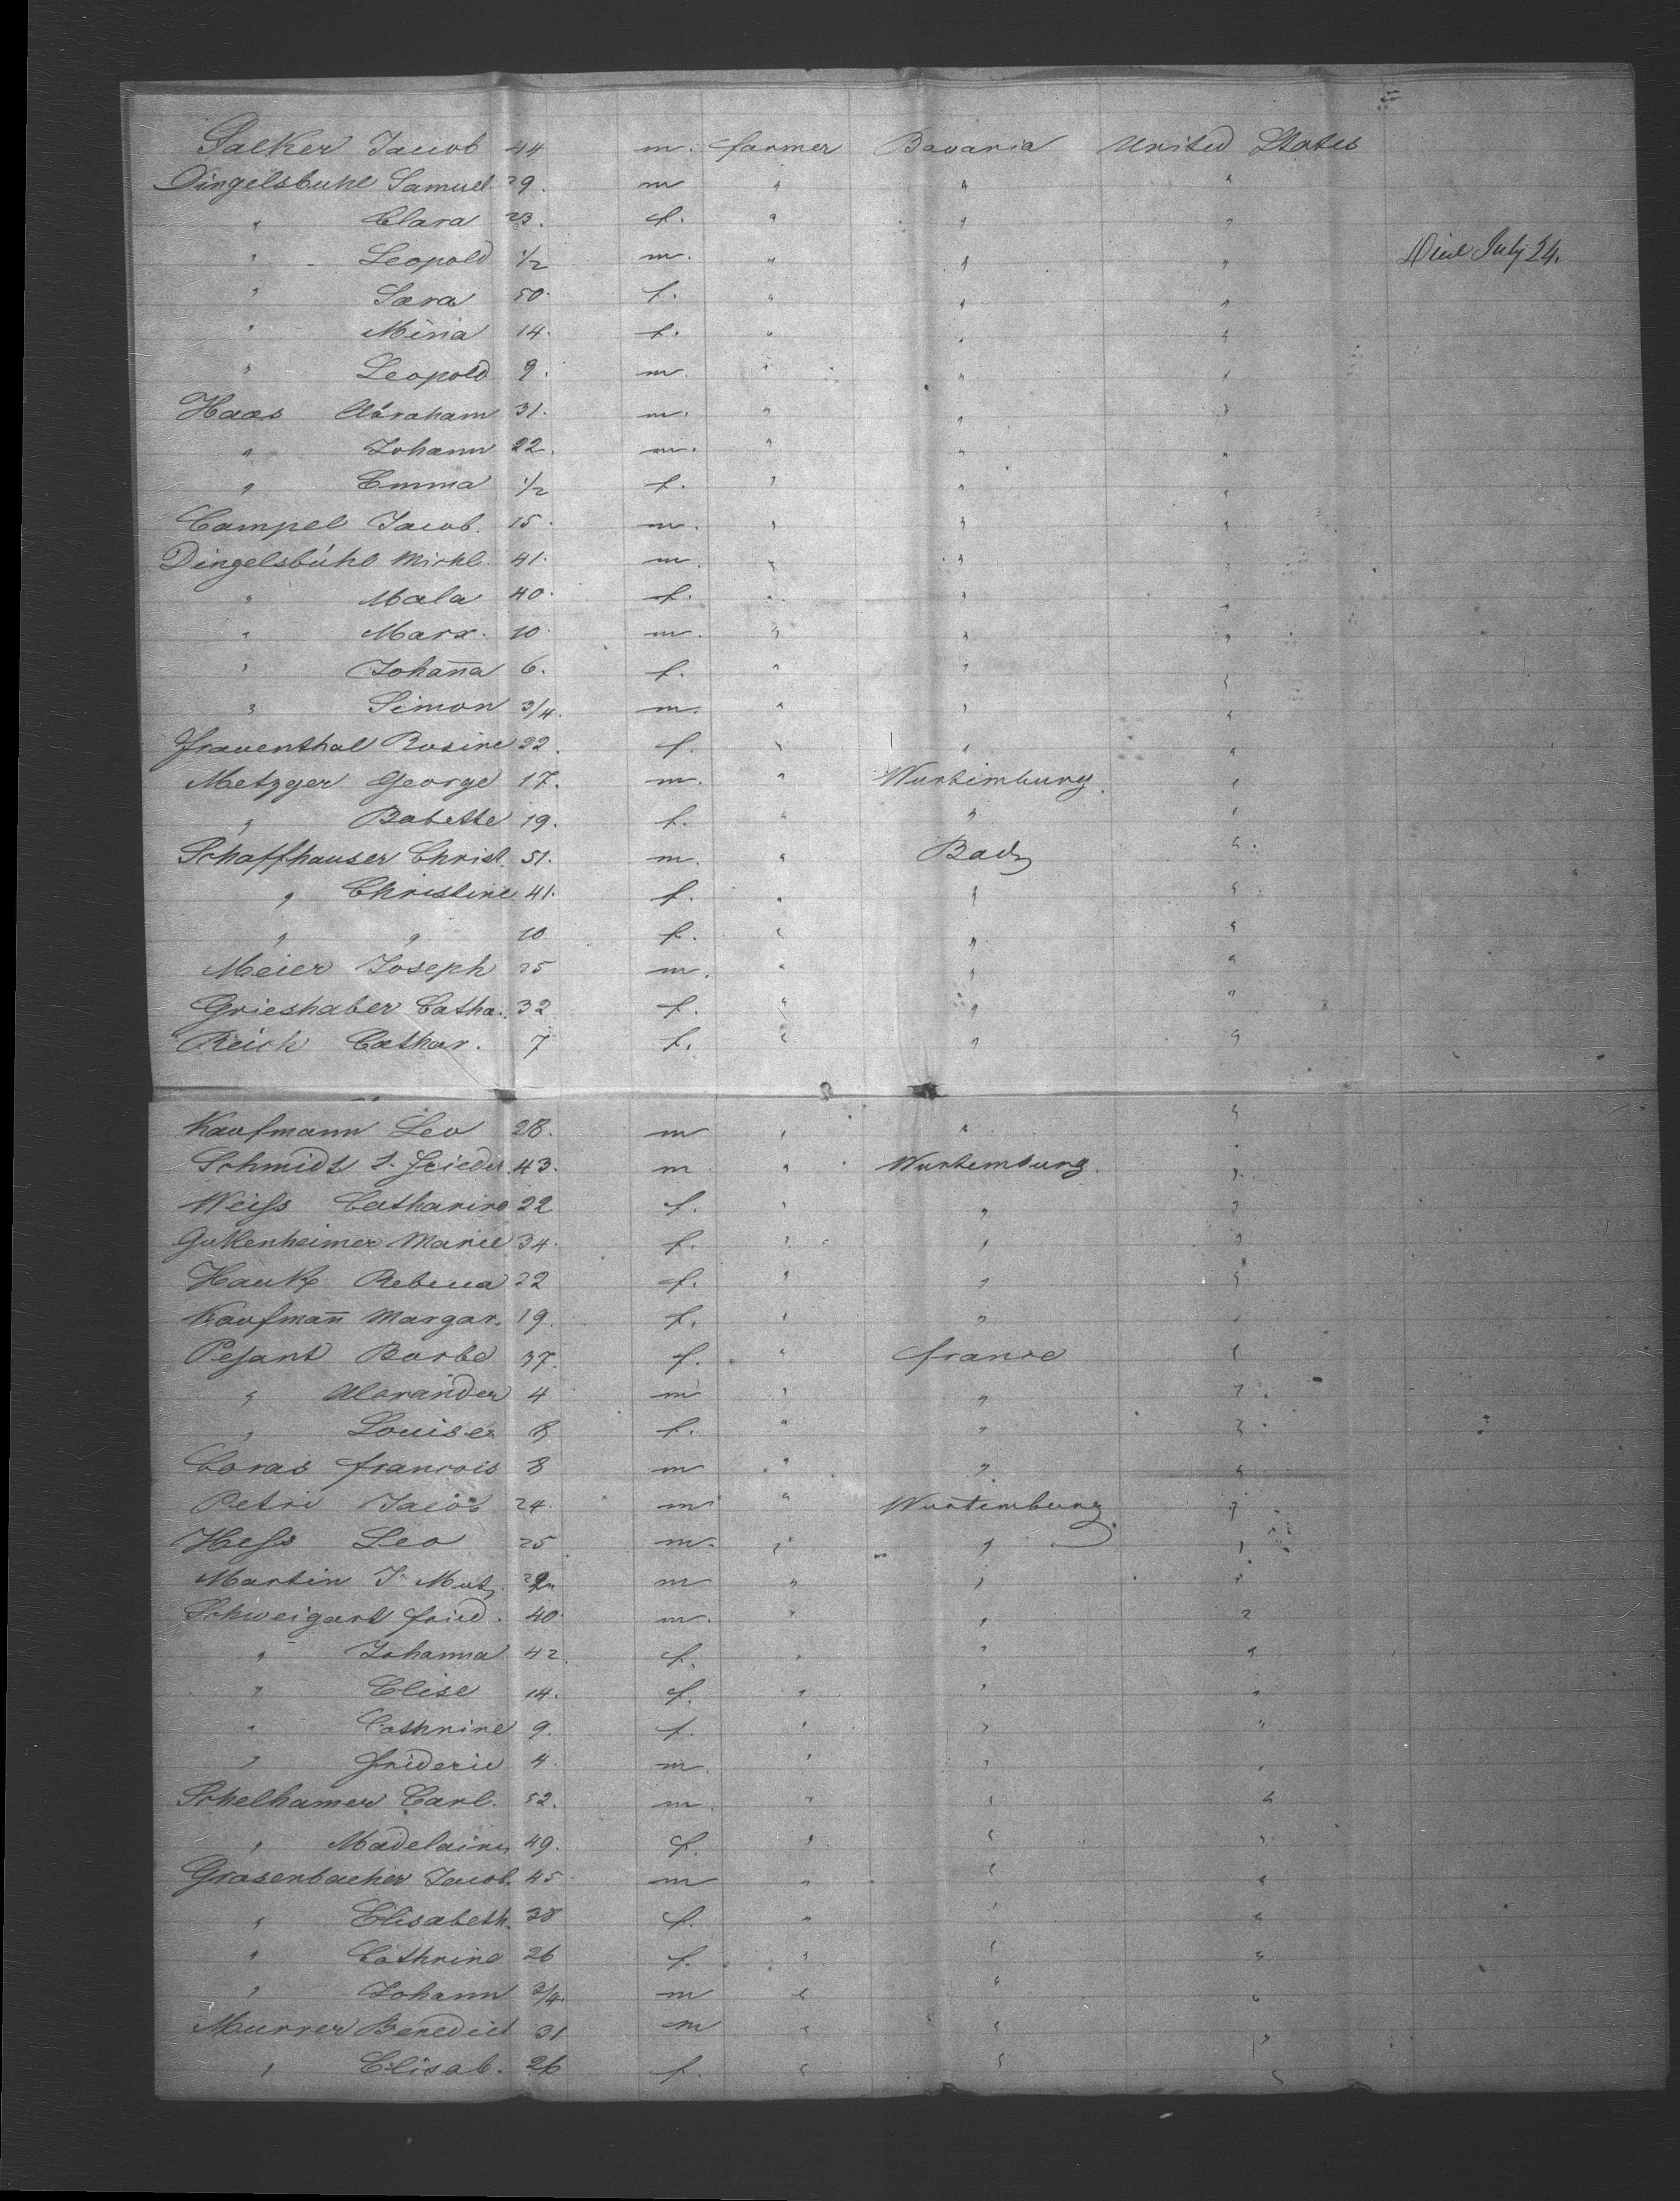 Salker Jacob 44 m. farmer Bavaria United States
Dingelsbuhl Samuel 29. m " " "
" Clara 23. f. " " "
" Leopold 1/2 m. " " " Died July 24.
" Sara 50. f. " " "
" Mina 14. f. " " "
" Leopold 9. m. " " "
Haas Abraham 31. m. " " "
" Johann 22. m. " " "
" Emma 1/2 f. " " "
Campel Jacob. 15. m. " " "
Dingelsbühl Michl. 41. m. " " "
" Mala 40. f. " " "
" Marx. 10. m. " " "
" Johan̄a 6. f. " " "
" Simon 3/4. m. " " "
Frauenthal Rosine 22. f. " " "
Metzger George 17. m. " Wurtimburg. "
" Babette 19. f. " " "
Schaffhauser Christ. 51. m. " Bad "
" Christine 41. f. " " "
" " 10. f. " " "
Meier Joseph 25 m. " " "
Grieshaber Catha. 32 f. " " "
Reich Cathar. 7 f. " " "
Kaufmann Leo 28. m " " "
Schmidt J. Frieder. 43. m " Wurtemburg. "
Weiss Catharine 22 f. " " "
Gukenheimer Marie 34. f. " " "
Hauk Rebecca 22 f. " " "
Kaufman̄ Margar. 19. f. " " "
Pesant Barbe 37. f. " France "
" Alexander 4 m " " "
" Louise 8 f. " " "
Coras Francois 8 m " " "
Petri Jacob 24. m " Wurtemburg "
Hess Leo 25 m. " " "
Martin J. m " " "
Schweigart Fried. 40. m. " " "
" Johanna 42. f. " " "
" Elise 14. f. " " "
" Cathrine 9. f. " " "
" Frideric 4. m. " " "
Schelhamer Carl. 52. m. " " "
" Madelaine 49. f. " " "
Grasenbacher Jacob. 45 m " " "
" Elisabeth. 38 f. " " "
" Cathrine 26 f. " " "
" Johann 3/4. m " " "
Murrer Benedict 31 m " " "
" Elisab. 26 f. " " "